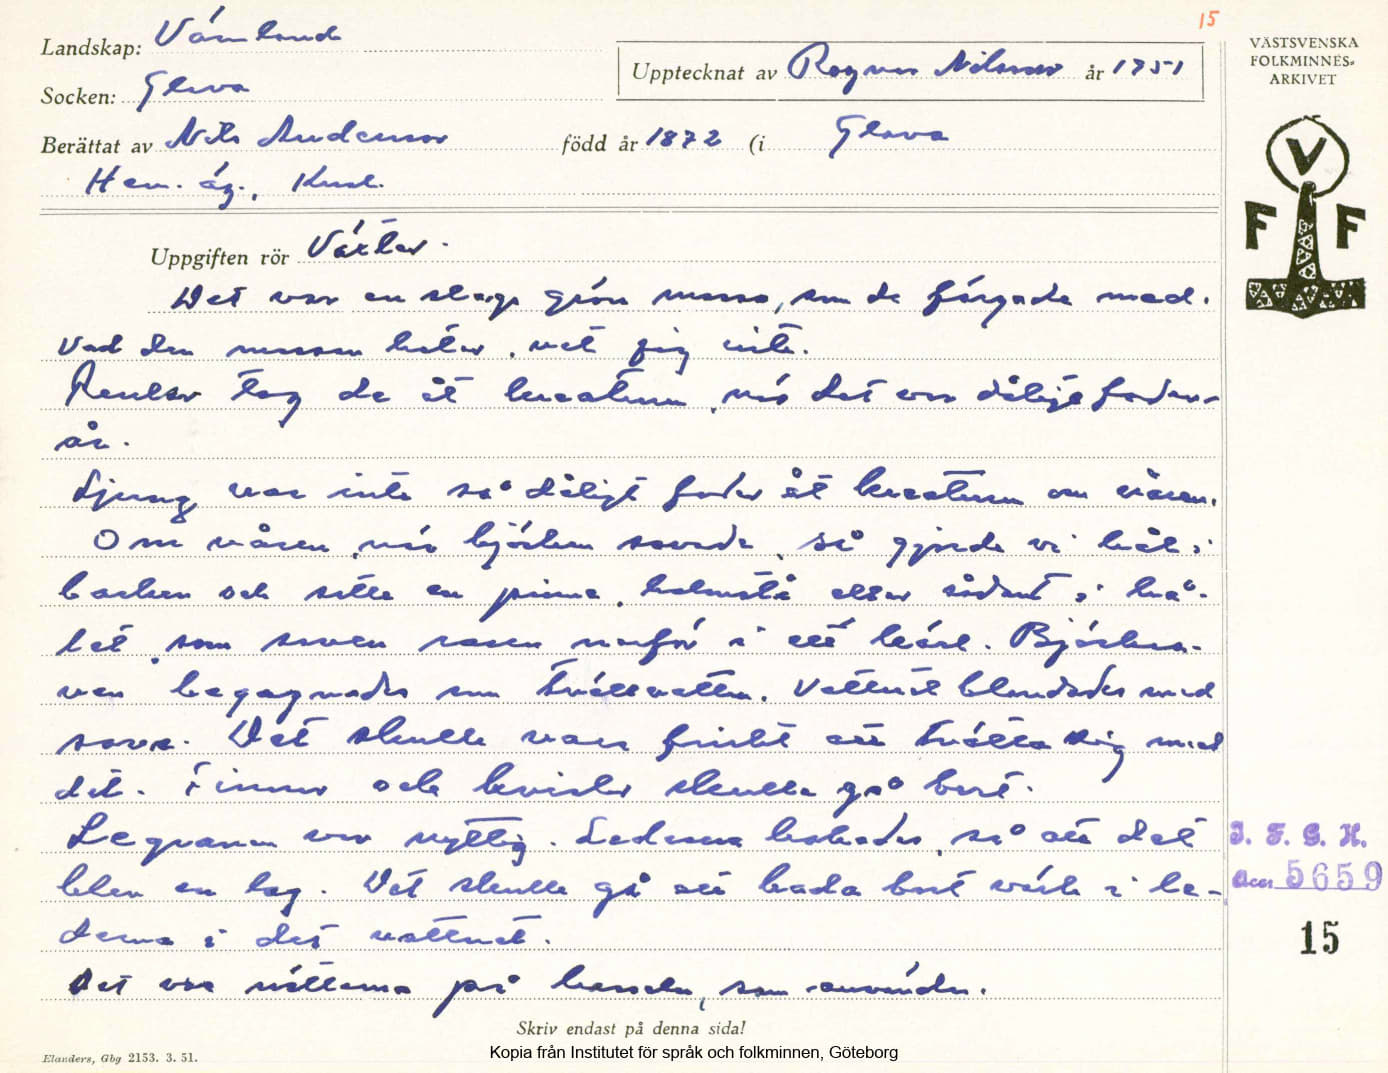 15
Landskap: Värmland
Socken: Glava
Upptecknat av Ragnar Nilsson år 1951
VÄSTSVENSKA
FOLKMINNES-
ARKIVET
Berättat av Nils Andersson född år 1872 (i Glava
Hem. äg.,
V
F F
Uppgiften rör Växter.
Det var en slags grön mossa, som de färgade med.
Vad den mossan heter, vet jag inte.
Renlav tog de åt kreaturen, när det var dåligt foder-
år.
Ljung var inte så dåligt foder åt kreaturen om våren.
Om våren, när björken savade, så gjorde vi hål i
barken och satte en pinne, halmstrå eller sådant i hå-
let, som saven rann utför i ett kärl. Björksa-
ven begagnades som tvättvatten. Vattnet blandades med
sava. Det skulle vara friskt att tvätta sig med
det. Finnar och kvislor skulle gå bort.
var nyttig. kokades, så att det
blev en lag. Det skulle gå att bada bort värk i le-
derna i det vattnet.
Det var rötterna på som användes.
J. F. G. H.
Acc. 5659
15
Skriv endast på denna sida!
Elanders, Gbg 2153. 3. 51.
Kopia från Institutet för språk och folkminnen, Göteborg